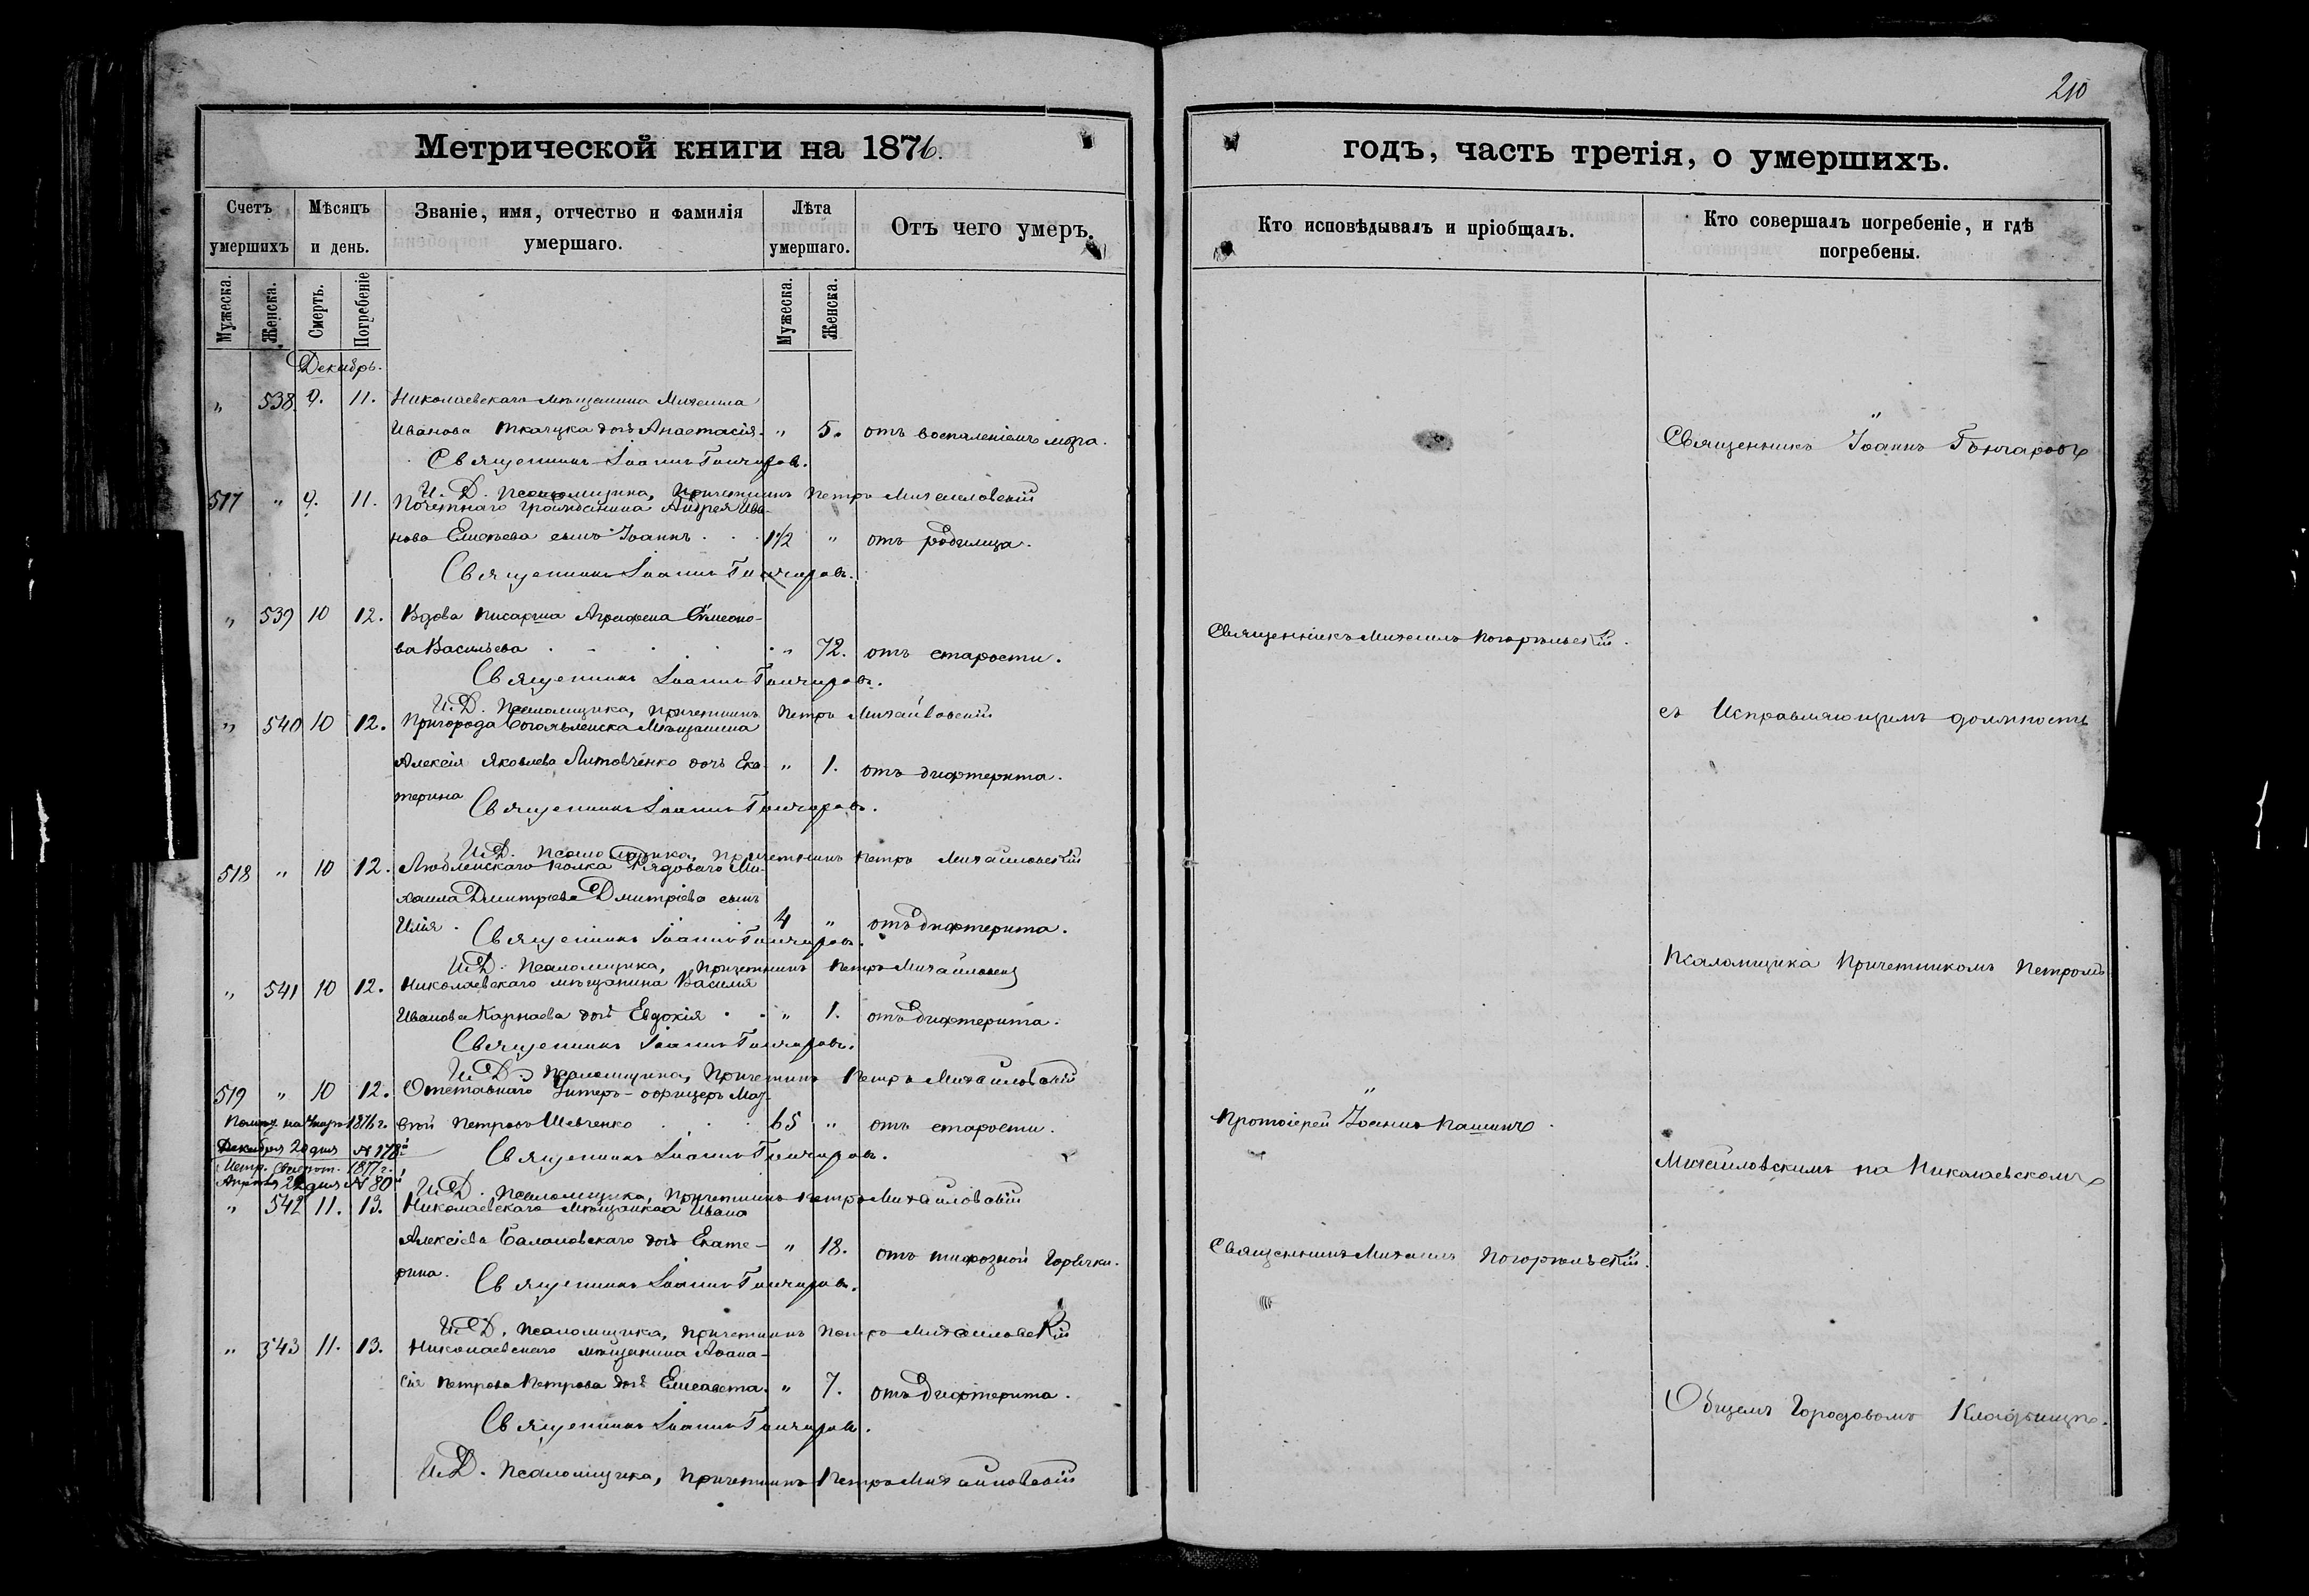 210
Метрической книги на 1876.
годъ, часть третія, о умершихъ.
Счетъ умершихъ
Мѣсяцъ и день.
Званіе, имя, отчество и фамилія умершаго.
Лѣта умершаго.
Отъ чего умеръ.
Кто исповѣдывалъ и пріобщалъ.
Кто совершалъ погребеніе, и гдѣ погребены.
Мужеска.
Женска.
Смерть.
Погребеніе
Мужеска.
Женска.
Декабрь.
" 538 9. 11. Николаевскаго мѣщанина Михаила
Иванова Ткачука дочь Анастасія. " 5. отъ воспаленіемъ
Священникъ Іоаннъ Гончаровъ.
И. Д. Псаломщика, Причетникъ Петръ Михайловскій
517 " 9. 11. Почетнаго гражданина Андрея Ива-
нова Емельева сынъ Іоаннъ 1½ " отъ родимца.
Священникъ Іоаннъ Гончаровъ.
" 539 10 12. Вдова писарша Агрифена Симеоно-
ва Васильева " 72. отъ старости.
Священникъ Іоаннъ Гончаровъ.
И. Д. Псаломщика, Причетникъ Петръ Михайловскій
" 540 10 12. Пригорода Богоявленска Мѣщанина
Алексія Яковлева Литовченко дочь Ека- " 1. отъ дифтерита.
терина
Священникъ Іоаннъ Гончаровъ.
И. Д. Псаломщика, Причетникъ Петръ Михайловскій
518 " 10 12. Люблинскаго полка Рядоваго Ми-
хаила Дмитріева Дмитріева сынъ
Илія. 4 " отъ дифтерита.
Священникъ Іоаннъ Гончаровъ.
И. Д. Псаломщика, Причетникъ Петръ Михайловскій
" 541 10 12. Николаевскаго мѣщанина Василия
Иванова Карнаева дочь Евдокія " 1. отъ дифтерита.
Священникъ Іоаннъ Гончаровъ.
И. Д. Псаломщика, Причетникъ Петръ Михайловскій
519 " 10 12. Отставнаго Унтеръ-офицеръ
Петровъ Шевченко 65 " отъ старости.
1876 г.
Декабря 20 дня № 178
Священникъ Іоаннъ Гончаровъ.
1877 г.
Апрѣля 22 дня № 80
И. Д. Псаломщика, Причетникъ Петръ Михайловскій
" 542 11. 13. Николаевскаго Мѣщанина Ивана
Алексіева Балановскаго дочь Екате- " 18. отъ тифозной горячки.
рина.
Священникъ Іоаннъ Гончаровъ.
И. Д. Псаломщика, Причетникъ Петръ Михайловскій
" 543 11. 13. Николаевскаго мѣщанина Афана-
сія Петрова Петрова дочь Елисавета. " 7. отъ дифтерита.
Священникъ Іоаннъ Гончаровъ.
И. Д. Псаломщика, Причетникъ Петръ Михайловскій
Священникъ Михаилъ Погорѣльскій.
Протоіерей Іоаннъ Пашинъ.
Священникъ Михаилъ Погорѣльскій.
Священникъ Іоаннъ Гончаровъ
съ Исправляющимъ должность
Псаломщика Причетникомъ Петромъ
Михайловскимъ на Николаевскомъ
Общемъ Городовомъ Кладбищѣ.